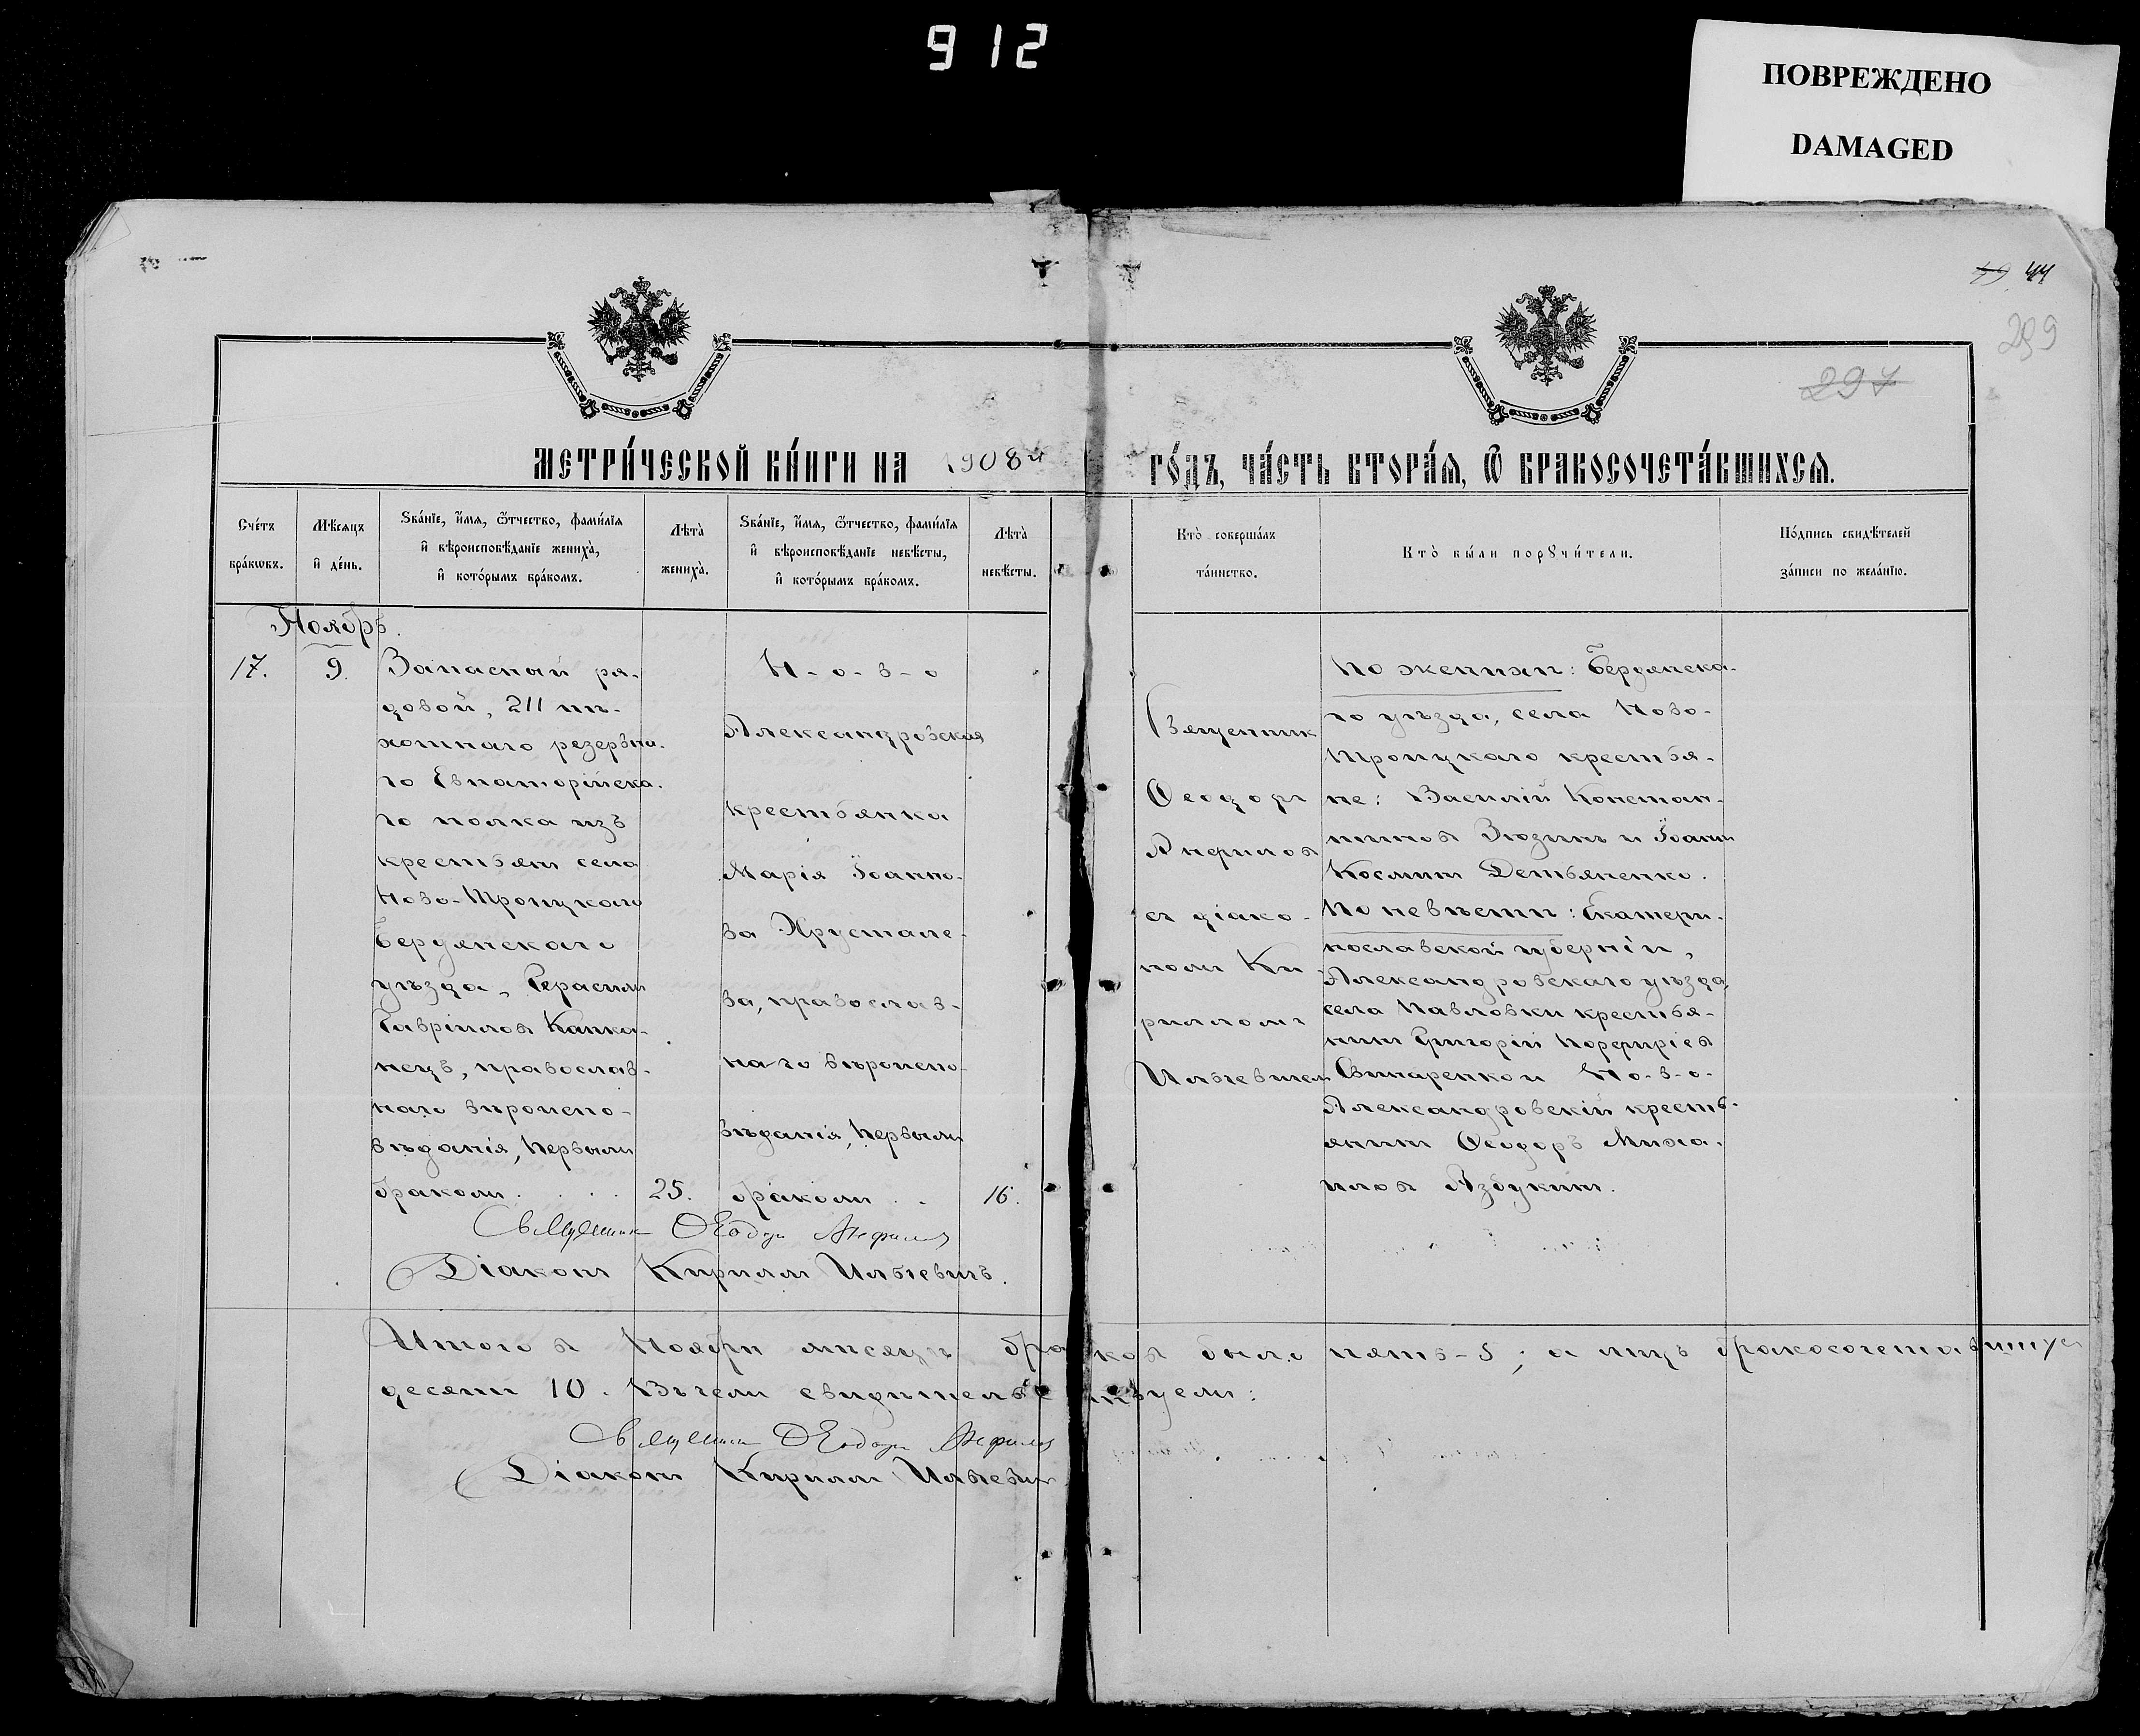 912
ПОВРЕЖДЕНО
DAMAGED
44
299
297
МЕТРИ́ЧЕСКОЙ КНИ́ГИ НА 1908й ГО́ДЪ, ЧА́СТЬ ВТОРА́Я, Ѿ БРАКОСОЧЕТА́ВШИХСЯ.
Сче́тъ
бра́кѡвъ.
Мѣ́сяцъ
и҆ де́нь.
Ѕва́нїе, и҆́мя, ѻ҆́тчество, фами́лїя
и҆ вѣроисповѣ́данїе жениха̀,
и҆ кото́рымъ бра́комъ.
Лѣта̀
жениха̀.
Ѕва́нїе, и҆́мя, ѻ҆́тчество, фами́лїя
и҆ вѣроисповѣ́данїе невѣ́сты,
и҆ кото́рымъ бра́комъ.
Лѣта̀
невѣ́сты.
Кто̀ соверша́лъ
та́инство.
Кто̀ бы́ли порꙋчи́тели.
По́дпись свидѣ́телей
за́писи по жела́нїю.
Ноябрь.
17.
9.
Запасный ря-
довой, 211 пѣ-
хотнаго резервна-
го Евпаторійска-
го полка изъ
крестьянъ села
Ново-Троицкаго
Бердянскаго
уѣзда, Герасимъ
Гавріиловъ Капка-
нецъ, православ-
наго вѣроиспо-
вѣданія, первымъ
бракомъ . . . .
25.
Н-о-в-о
Александровская
крестьянка
Марія Іоанно-
ва Хрустале-
ва, православ-
наго вѣроиспо-
вѣданія, первымъ
бракомъ . .
16.
Священникъ
Ѳеодоръ
Анфиловъ
съ діако-
номъ Ки-
рилломъ
Ильевичемъ
По женихѣ: Бердянска-
го уѣзда, села Ново-
Троицкаго крестья-
не: Василій Констан-
тиновъ Зюзинъ и Іоаннъ
Космин Демьяненко.
По невѣстѣ: Екатери-
нославской губерніи,
Александровскаго уѣзда
села Павловки крестья-
нинъ Григорій Порфиріевъ
Свинаренко и Но-в-о-
Александровскій кресть-
янинъ Ѳеодоръ Миха-
иловъ Азбукинъ.
Священникъ Ѳеодоръ Анфиловъ
Діаконъ Кириллъ Ильевичъ.
Итого въ Ноябрѣ мѣсяцѣ браковъ было пять-5; а лицъ бракосочетавшихся
десять 10. Въ чемъ свидѣтельствуемъ:
Священникъ Ѳеодоръ Анфиловъ
Діаконъ Кириллъ Ильевичъ